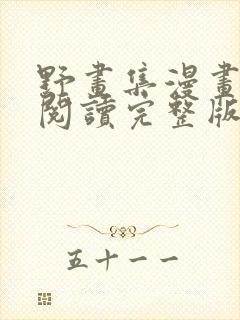 野畫集漫畫
閱讀完整版
五十一一